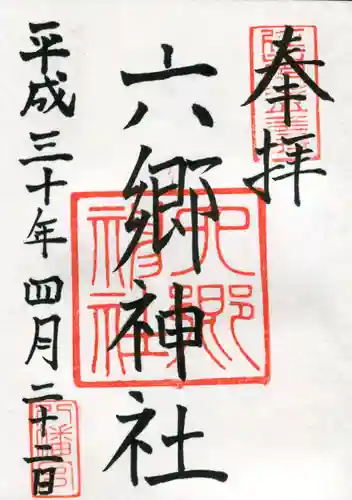 奉拝
六郷神社
平成三十年四月二十二日
六郷神社